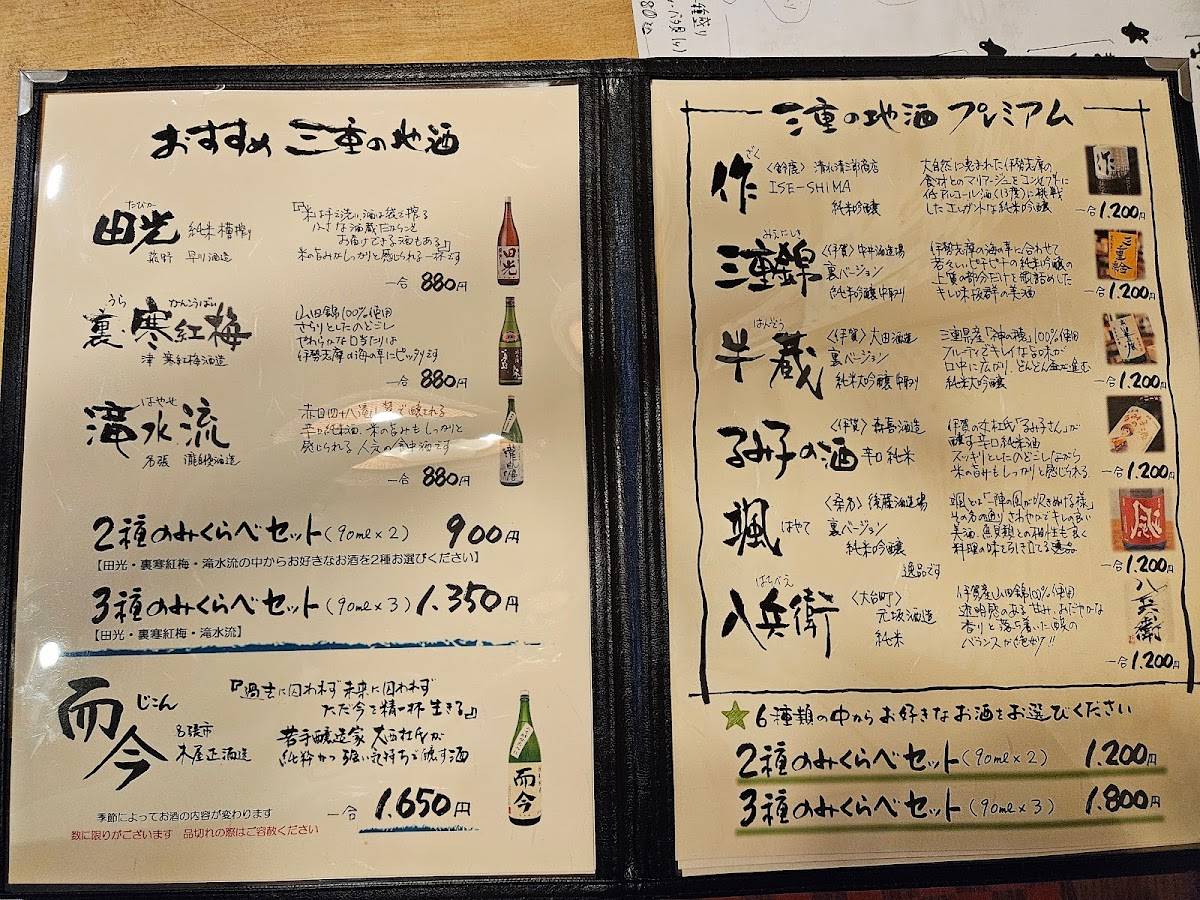 おすすめ 三重の地酒
たびか
田光 純米槽搾り
菰野 早川酒造
『米は手で洗い、酒は袋で搾る
小さな酒蔵だからこそ
お届けできる酒もある』
米の旨みがしっかりと感じられる一杯です
一合 880円
うら かんこうばい
裏・寒紅梅
津 寒紅梅酒造
山田錦100%使用
さらりとしたのどごし
やわらかな口当たりは
伊勢志摩の海の幸にピッタリです
一合 880円
はやせ
滝水流
名張 瀧自慢酒造
赤目四十八滝で醸される
辛口純米酒、米の旨みもしっかりと
感じられる人気の食中酒です
一合 880円
2種のみくらべセット(90ml×2) 900円
【田光・裏寒紅梅・滝水流の中からお好きなお酒を2種お選びください】
3種のみくらべセット(90ml×3) 1.350円
【田光・裏寒紅梅・滝水流】
而今 じこん
名張市
木屋正酒造
『過去に囚われず未来に囚われず
ただ今を精一杯生きる』
若手醸造家 大西杜氏が
純粋かつ強い気持ちで醸す酒
一合 1.650円
季節によってお酒の内容が変わります
数に限りがございます 品切れの際はご容赦ください
三重の地酒 プレミアム
ざく
作
〈鈴鹿〉清水清三郎商店
ISE-SHIMA
純米吟醸
大自然に恵まれた伊勢志摩の
食材とのマリアージュをコンセプトに
低アルコール酒(13度)に挑戦
したエレガントな純米吟醸
一合 1.200円
みえにしき
三重錦
〈伊賀〉中井酒造場
裏バージョン
純米吟醸中取り
伊勢志摩の海の幸に合わせて
若々しいピチピチの純米吟醸の
上質の部分だけを瓶詰めした
キレ味抜群の美酒
一合 1.200円
はんぞう
半蔵
〈伊賀〉大田酒造
裏バージョン
純米大吟醸中取り
三重県産「神の穂」100%使用
フルーティでキレイな旨味が
口中に広がり、どんどん盃が進む
純米大吟醸
一合 1.200円
るみ子の酒
〈伊賀〉森喜酒造
辛口純米
伊賀の女杜氏「るみ子さん」が
醸す辛口純米酒
スッキリとしたのどごしながら
米の旨みもしっかり感じられる
一合 1.200円
颯 はやて
〈桑名〉後藤酒造場
裏バージョン
純米吟醸
颯とは「一陣の風が吹きぬける様」
その名の通りさわやかでキレの良い
美酒、魚貝類との相性も良く
料理の味を引き立てる逸品
逸品です
一合 1.200円
はちべえ
八兵衛
〈大台町〉
元坂酒造
純米
伊賀産山田錦100%使用
透明感のある甘み、おだやかな
香りと落ち着いた酸の
バランスが絶妙!!
一合 1.200円
6種類の中からお好きなお酒をお選びください
2種のみくらべセット(90ml×2) 1.200円
3種のみくらべセット(90ml×3) 1.800円